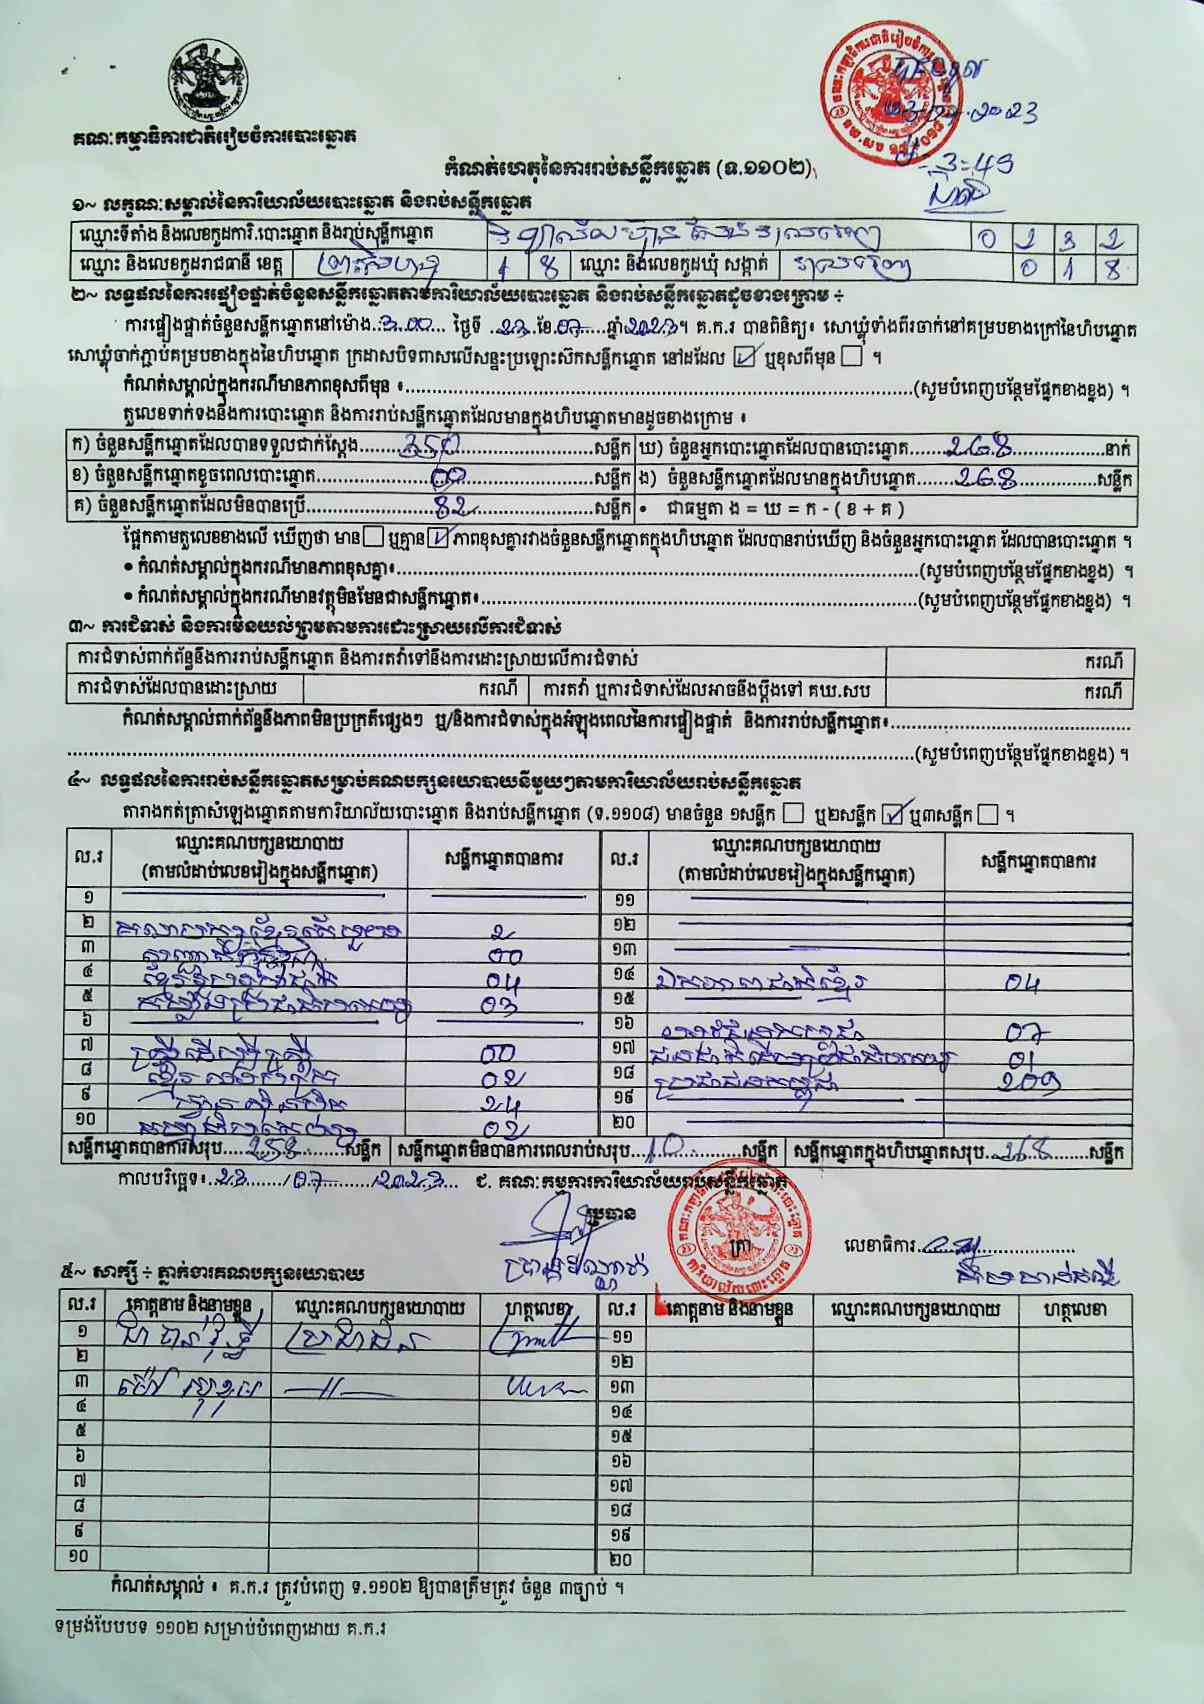 គណៈកម្មាធិការជាតិរៀបចំការបោះឆ្នោត
23.07.2023
3:49
កំណត់ហេតុនៃការរាប់សន្លឹកឆ្នោត (ទ.១១០២)
១~ លក្ខណៈសម្គាល់នៃការិយាល័យបោះឆ្នោត និងរាប់សន្លឹកឆ្នោត
ឈ្មោះទីតាំង និងលេខកូដការិ.បោះឆ្នោត និងរាប់សន្លឹកឆ្នោត 0 2 3 2
ឈ្មោះ និងលេខកូដរាជធានី ខេត្ត ព្រះសីហនុ 1 8 ឈ្មោះ និងលេខកូដឃុំ សង្កាត់ 0 1 8
២~ លទ្ធផលនៃការផ្ទៀងផ្ទាត់ចំនួនសន្លឹកឆ្នោតតាមការិយាល័យបោះឆ្នោត និងរាប់សន្លឹកឆ្នោតដូចខាងក្រោម ÷
ការផ្ទៀងផ្ទាត់ចំនួនសន្លឹកឆ្នោតនៅម៉ោង 3:00 ថ្ងៃទី 23 ខែ 07 ឆ្នាំ 2023 ។ គ.ក.រ បានពិនិត្យ៖ សោឃ្លុំទាំងពីរចាក់នៅគម្របខាងក្រៅនៃហិបឆ្នោត
សោឃ្លុំចាក់ភ្ជាប់គម្របខាងក្នុងនៃហិបឆ្នោត ក្រដាសបិទពាសលើសន្ទះប្រឡោះស៊កសន្លឹកឆ្នោត នៅដដែល ☑ ឬខុសពីមុន ☐ ។
កំណត់សម្គាល់ក្នុងករណីមានភាពខុសពីមុន ៖ (សូមបំពេញបន្ថែមផ្នែកខាងខ្នង) ។
តួលេខទាក់ទងនឹងការបោះឆ្នោត និងការរាប់សន្លឹកឆ្នោតដែលមានក្នុងហិបឆ្នោតមានដូចខាងក្រោម ៖
ក) ចំនួនសន្លឹកឆ្នោតដែលបានទទួលជាក់ស្តែង 350 សន្លឹក ឃ) ចំនួនអ្នកបោះឆ្នោតដែលបានបោះឆ្នោត 268 នាក់
ខ) ចំនួនសន្លឹកឆ្នោតខូចពេលបោះឆ្នោត 00 សន្លឹក ង) ចំនួនសន្លឹកឆ្នោតដែលមានក្នុងហិបឆ្នោត 268 សន្លឹក
គ) ចំនួនសន្លឹកឆ្នោតដែលមិនបានប្រើ 82 សន្លឹក • ជាធម្មតា ង = ឃ = ក - ( ខ + គ )
ផ្អែកតាមតួលេខខាងលើ ឃើញថា មាន ☐ ឬគ្មាន ☑ ភាពខុសគ្នារវាងចំនួនសន្លឹកឆ្នោតក្នុងហិបឆ្នោត ដែលបានរាប់ឃើញ និងចំនួនអ្នកបោះឆ្នោត ដែលបានបោះឆ្នោត ។
• កំណត់សម្គាល់ក្នុងករណីមានភាពខុសគ្នា៖ (សូមបំពេញបន្ថែមផ្នែកខាងខ្នង) ។
• កំណត់សម្គាល់ក្នុងករណីមានវត្ថុមិនមែនជាសន្លឹកឆ្នោត៖ (សូមបំពេញបន្ថែមផ្នែកខាងខ្នង) ។
៣~ ការជំទាស់ និងការមិនយល់ព្រមតាមការដោះស្រាយលើការជំទាស់
ការជំទាស់ពាក់ព័ន្ធនឹងការរាប់សន្លឹកឆ្នោត និងការតវ៉ាទៅនឹងការដោះស្រាយលើការជំទាស់ ករណី
ការជំទាស់ដែលបានដោះស្រាយ ករណី ការតវ៉ា ឬការជំទាស់ដែលអាចនឹងប្តឹងទៅ គឃ.សប ករណី
កំណត់សម្គាល់ពាក់ព័ន្ធនឹងភាពមិនប្រក្រតីផ្សេងៗ ឬ/និងការជំទាស់ក្នុងអំឡុងពេលនៃការផ្ទៀងផ្ទាត់ និងការរាប់សន្លឹកឆ្នោត៖
(សូមបំពេញបន្ថែមផ្នែកខាងខ្នង) ។
៤~ លទ្ធផលនៃការរាប់សន្លឹកឆ្នោតសម្រាប់គណបក្សនយោបាយនីមួយៗតាមការិយាល័យរាប់សន្លឹកឆ្នោត
តារាងកត់ត្រាសំឡេងឆ្នោតតាមការិយាល័យបោះឆ្នោត និងរាប់សន្លឹកឆ្នោត (ទ.១១០៨) មានចំនួន ១សន្លឹក ☐ ឬ២សន្លឹក ☑ ឬ៣សន្លឹក ☐ ។
ល.រ ឈ្មោះគណបក្សនយោបាយ (តាមលំដាប់លេខរៀងក្នុងសន្លឹកឆ្នោត) សន្លឹកឆ្នោតបានការ ល.រ ឈ្មោះគណបក្សនយោបាយ (តាមលំដាប់លេខរៀងក្នុងសន្លឹកឆ្នោត) សន្លឹកឆ្នោតបានការ
១ ១១
២ 2 ១២
៣ 00 ១៣
៤ 04 ១៤ ឯកភាពជាតិខ្មែរ 04
៥ 03 ១៥
៦ ១៦ 07
៧ 00 ១៧ 01
៨ 02 ១៨ ប្រជាជនកម្ពុជា 209
៩ 24 ១៩
១០ 02 ២០
សន្លឹកឆ្នោតបានការសរុប 258 សន្លឹក សន្លឹកឆ្នោតមិនបានការពេលរាប់សរុប 10 សន្លឹក សន្លឹកឆ្នោតក្នុងហិបឆ្នោតសរុប 268 សន្លឹក
កាលបរិច្ឆេទ៖ 23 / 07 / 2023 ជ. គណៈកម្មការការិយាល័យរាប់សន្លឹកឆ្នោត
ប្រធាន
ត្រា
លេខាធិការ
៥~ សាក្សី ÷ ភ្នាក់ងារគណបក្សនយោបាយ
ល.រ គោត្តនាម និងនាមខ្លួន ឈ្មោះគណបក្សនយោបាយ ហត្ថលេខា ល.រ គោត្តនាម និងនាមខ្លួន ឈ្មោះគណបក្សនយោបាយ ហត្ថលេខា
១ ប្រជាជន ១១
២ ១២
៣ ១៣
៤ ១៤
៥ ១៥
៦ ១៦
៧ ១៧
៨ ១៨
៩ ១៩
១០ ២០
កំណត់សម្គាល់ ៖ គ.ក.រ ត្រូវបំពេញ ទ.១១០២ ឱ្យបានត្រឹមត្រូវ ចំនួន ៣ច្បាប់ ។
ទម្រង់បែបបទ ១១០២ សម្រាប់បំពេញដោយ គ.ក.រ